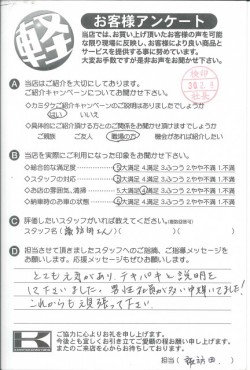 軽
お客様アンケート
当店では、お買い上げ頂いたお客様の声を可能
な限り現場に反映し、お客様により良い商品と
サービスを提供する事に努めています。
大変お手数ですが是非お声をお聞かせ下さい。
A 当店はご紹介を大切にしております。
ご紹介キャンペーンについてお聞かせ下さい。
◇カミタケご紹介キャンペーンのご説明はありましたでしょうか
はい いいえ
◇具体的にご紹介頂ける方とのご関係をお聞かせ頂けますでしょうか
ご親族 ご友人 職場の方 機会があれば紹介したい
B 当店を実際にご利用になった印象をお聞かせ下さい。
◇総合的な満足度 5大満足 4満足 3ふつう 2やや不満 1不満
◇スタッフの対応 5大満足 4満足 3ふつう 2やや不満 1不満
◇お店の雰囲気、清掃 5大満足 4満足 3ふつう 2やや不満 1不満
◇納車時のお車の状態 5大満足 4満足 3ふつう 2やや不満 1不満
C 評価したいスタッフがいれば教えてください。
スタッフ名 ( 諏訪田さん )
D 担当させて頂きましたスタッフへのご指摘、ご指導メッセージを
お願いします。応援メッセージもぜひお願いします。
とても元気があり、テキパキと説明を
して下さいました。男性が多い中輝いてました!
これからも頑張って下さい。
K
ご協力に心よりお礼を申し上げます。
今後とも宜しくお引き立てご愛顧の程お願い申し上げます。
またのご来店を心からお待ちしております。
担当 ( 諏訪田 )